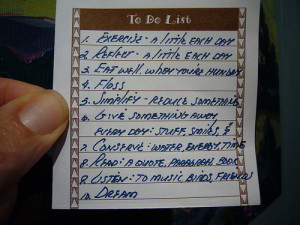 To Do List
1. EXERCISE - A LITTLE EACH DAY
2. REFLECT - A LITTLE EACH DAY
3. EAT WELL. WHEN YOU'RE HUNGRY
4. FLOSS
5. SIMPLIFY - REDUCE SOMETHING
6. GIVE SOMETHING AWAY
EVERY DAY: STUFF, SMILES, &
7. CONSERVE: WATER, ENERGY, TIME
8. READ: A QUOTE, PARAGRAPH, BOOK
9. LISTEN: TO MUSIC, BIRDS, FRIENDS
10. DREAM